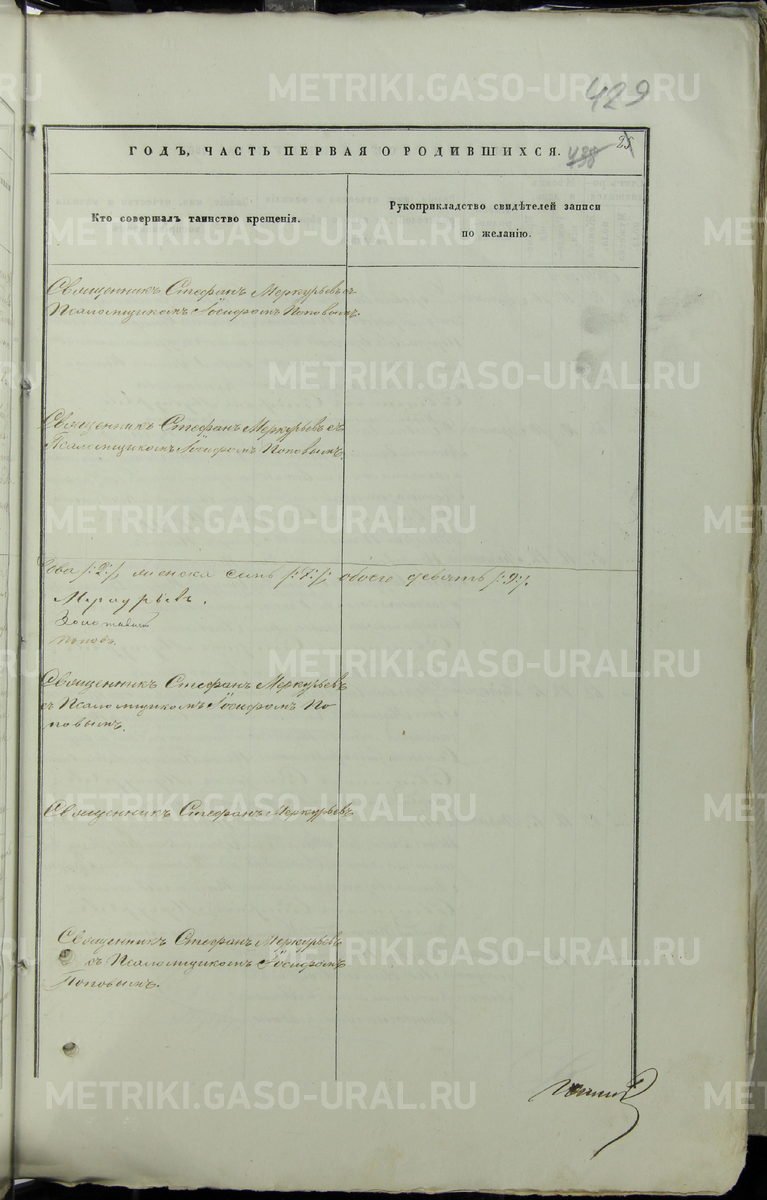 429
ГОДЪ, ЧАСТЬ ПЕРВАЯ О РОДИВШИХСЯ.
438
Кто совершалъ таинство крещенія.
Рукоприкладство свидѣтелей записи
по желанію.
Священникъ Стефанъ Меркурьевъ съ
Псаломщикомъ Іосифомъ Поповымъ.
Священникъ Стефанъ Меркурьевъ съ
Псаломщикомъ Іосифомъ Поповымъ.
два /:2:/, женска семь /:7:/, обоего девять /:9:/.
Меркурьевъ.
Попов.
Священникъ Стефанъ Меркурьевъ
съ Псаломщикомъ Іосифомъ По-
повымъ.
Священникъ Стефанъ Меркурьевъ
Священникъ Стефанъ Меркурьевъ
съ Псаломщикомъ Іосифомъ
Поповымъ.
METRIKI.GASO-URAL.RU